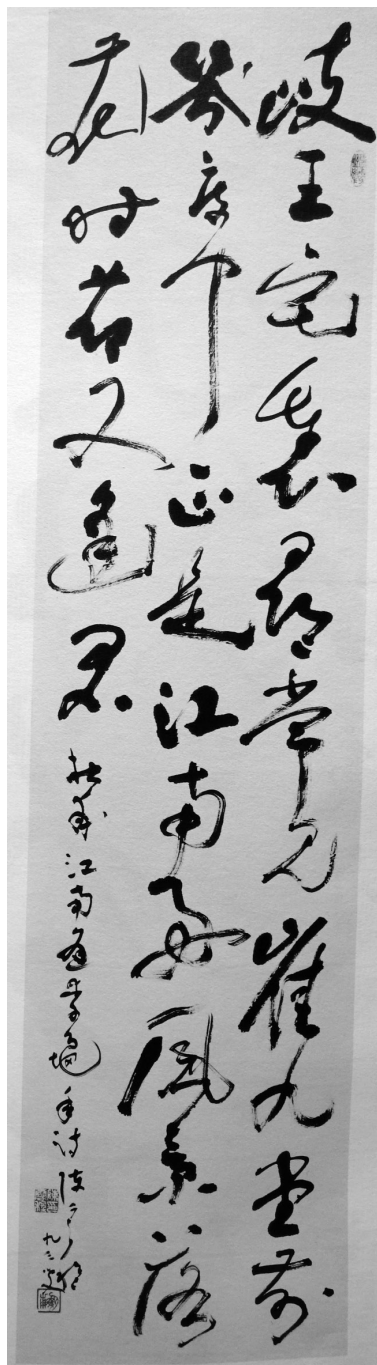 岐王宅裏尋常見崔九堂前
幾度聞正是江南好風景落
花時節又逢君
杜甫江南逢李龜年詩陳